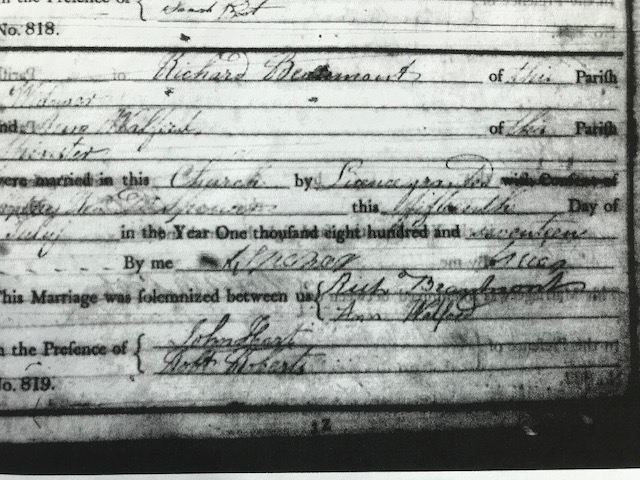 in the Presence of
Sarah
No. 818.
to Richard Beaumont of this Parish
Widower
and Ann Walford of this Parish
Spinster
were married in this Church by Licence granted with Consent of
this fifteenth Day of
July in the Year One thousand eight hundred and seventeen
By me
This Marriage was solemnized between us Richd Beaumont
Ann Walford
In the Presence of John Hart
Robt Roberts
No. 819.